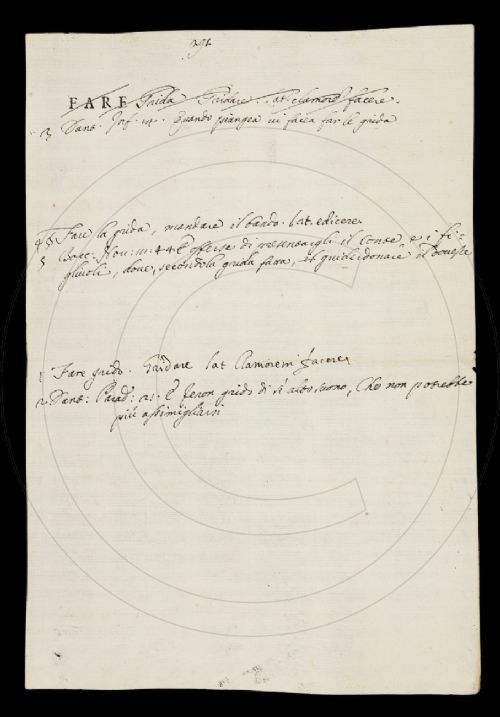 291.
FARE Grida Gridare. lat. clamorẽ facere.
3 Dant. Inf. 14. Quando piangea vi facea far le grida
4 § Fare la grida, mandare il bando. lat. edicere.
5 Bocc. Nou: 18: 44 E offerse di presentargli il Conte e i fi=
gliuoli, doue, secondo la grida fatta, il guiderdonare si douesse
1 Fare grido. Gridare lat Clamorem facere.
2 Dant: Parad: 21. E feron grido di sì alto suono, Che non potrebbe
più assimigliarsi